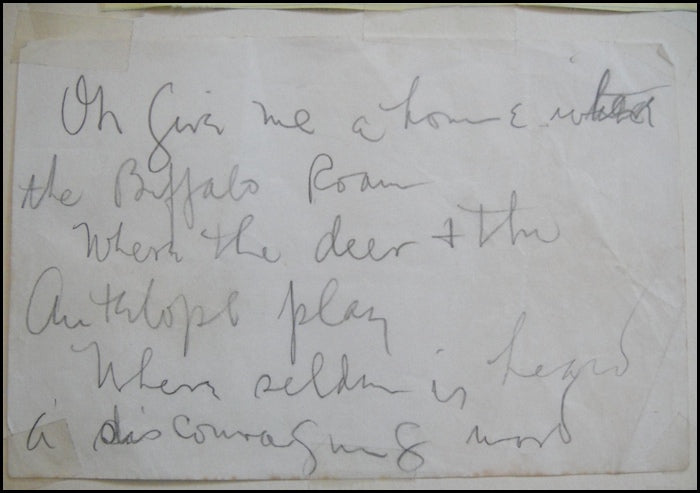 Oh give me a home where
the Buffalo Roam
Where the deer + the
Antelope play
Where seldom is heard
a discouraging word